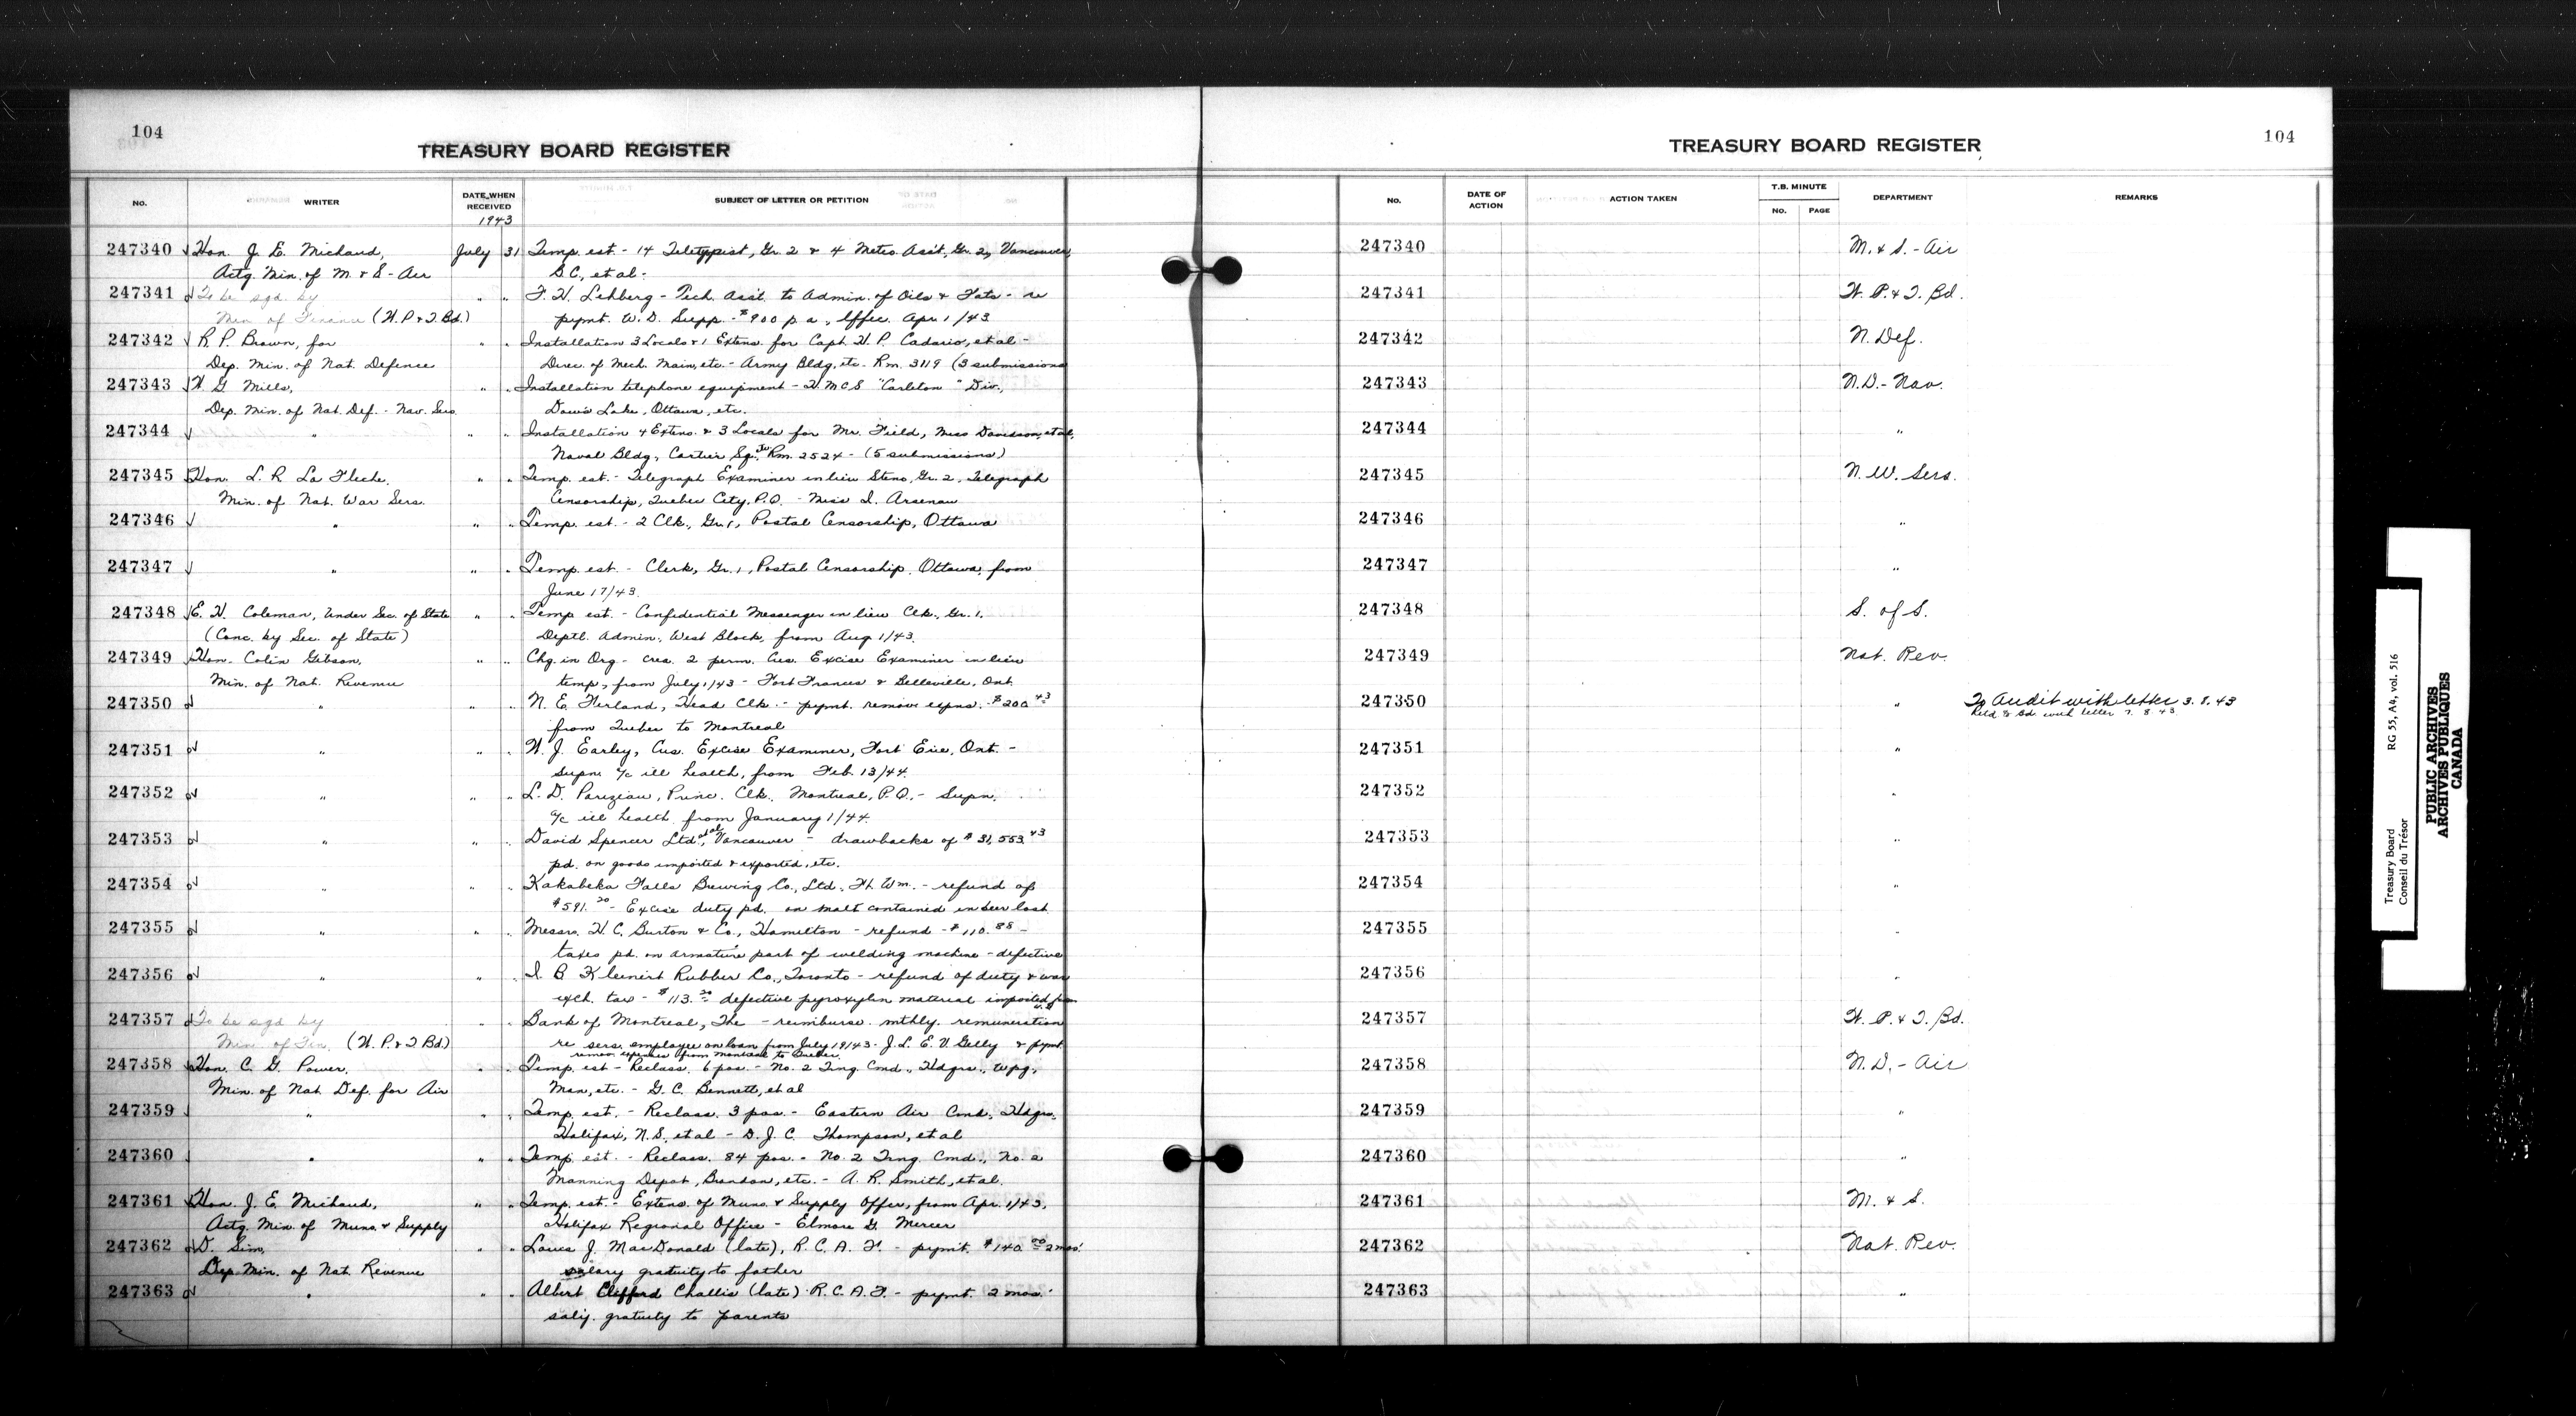 104
TREASURY BOARD REGISTER
NO. WRITER DATE WHEN RECEIVED SUBJECT OF LETTER OR PETITION
1943
247340 Hon. J. E. Michaud, July 31 Temp. est. - 14 Teletypist, Gr. 2 & 4 Meteo. Ass't, Gr. 2, Vancouver,
Actg. Min. of M. & S - Air B.C., et al.
247341 To be sgd by " " F. H. Lehberg - Tech. Ass't. to Admin. of Oils & Fats - re
Min. of Finance (W.P. & T. Bd.) pymt. W. D. Supp. - $900 p.a., effec. Apr. 1/43
247342 R. P. Brown, for " " Installation 3 Locals & 1 Extens. for Capt. H. P. Cadario, et al -
Dep. Min. of Nat. Defence Direc. of Mech. Main, etc. - Army Bldg, etc. Rm. 3119 (3 submissions
247343 W. G. Mills, " " Installation telephone equipment - H.M.C.S "Carleton" Div.,
Dep. Min. of Nat. Def. - Nav. Sers. Dow's Lake, Ottawa, etc.
247344 " " " Installation 4 Extens. & 3 Locals for Mr. Field, Miss Davidson, et al,
Naval Bldg., Cartier Sq. Rm. 2524 - (5 submissions)
247345 Hon. L. R. La Fleche, " " Temp. est. - Telegraph Examiner in lieu Steno, Gr. 2, Telegraph
Min. of Nat. War Sers. Censorship, Quebec City, P.Q. - Miss I. Arsenau
247346 " " " Temp. est. - 2 Clk., Gr. 1, Postal Censorship, Ottawa
247347 " " " Temp. est. - Clerk, Gr. 1, Postal Censorship, Ottawa, from
June 17/43.
247348 E. H. Coleman, Under Sec. of State " " Temp est. - Confidential Messenger in lieu Clk., Gr. 1.
(Conc. by Sec. of State) Deptl. Admin., West Block, from Aug 1/43.
247349 Hon. Colin Gibson, " " Chg. in Org - crea. 2 perm. Cus. Excise Examiner in lieu
Min. of Nat. Revenue temp., from July 1/43 - Fort Frances & Belleville, Ont.
247350 " " " N. E. Ferland, Head Clk. - pymt. remove expns. - $200 43
from Quebec to Montreal
247351 " " " W. J. Earley, Cus. Excise Examiner, Fort Erie, Ont. -
supn. a/c ill health, from Feb. 13/44.
247352 " " " L. D. Parizeau, Princ. Clk. Montreal, P.Q. - Supn.
a/c ill health from January 1/44.
247353 " " " David Spencer Ltd., et al, Vancouver - drawbacks of $31,553.43
pd. on goods imported & exported, etc.
247354 " " " Kakabeka Falls Brewing Co., Ltd., Ft. Wm. - refund of
$591.20 - Excise duty pd. on malt contained in beer lost
247355 " " " Messrs. H. C. Burton & Co., Hamilton - refund - $110.88 -
taxes pd. on armature part of welding machine - defective
247356 " " " I. B. Kleinert Rubber Co., Toronto - refund of duty & war
exch. tax - $113. defective pyroxylin material imported from
247357 To be sgd by " " Bank of Montreal, The - reimburse. mthly. remuneration
Min. of Fin. (W.P. & T Bd.) re sers. employee on loan from July 19/43 - J. L. E. V. Gelly & pymt.
remov. expenses from Montreal to Quebec
247358 Hon. C. G. Power, " " Temp. est - Reclass. 6 pos. - No. 2 Tng. Cmd., Hdqrs., Wpg,
Min. of Nat. Def. for Air Man, etc. - G. C. Bennett, et al
247359 " " " Temp. est. - Reclass. 3 pos. - Eastern Air Cmd., Hdqrs.
Halifax, N.S, et al - D. J. C. Thompson, et al
247360 " " " Temp. est. - Reclass. 84 pos. - No. 2 Tng. Cmd., No. 2
Manning Depot, Brandon, etc. - A. R. Smith, et al.
247361 Hon. J. E. Michaud, " " Temp. est. - Extens. of Muns. & Supply Offcr, from Apr. 1/43,
Actg. Min. of Muns. & Supply Halifax Regional Office - Elmore G. Mercer
247362 D. Sim, " " Louis J. MacDonald (late), R.C.A.F. - pymt. $140.00 2 mos.
Dep. Min. of Nat. Revenue salary gratuity to father
247363 " " " Albert Clifford Challis (late) R.C.A.F. - pymt. 2 mos.
saly. gratuity to parents
104
TREASURY BOARD REGISTER
NO. DATE OF ACTION ACTION TAKEN T.B. MINUTE NO. PAGE DEPARTMENT REMARKS
247340 M. & S. - Air
247341 W. P. & T. Bd.
247342 N. Def.
247343 N.D. - Nav.
247344 "
247345 N. W. Sers.
247346 "
247347 "
247348 S. of S.
247349 Nat. Rev.
247350 " To Audit with letter 3.8.43
Retd to Bd. with letter 7.8.43
247351 "
247352 "
247353 "
247354 "
247355 "
247356 "
247357 W. P. & T. Bd.
247358 N.D. - Air
247359 "
247360 "
247361 M. & S.
247362 Nat. Rev.
247363 "
Treasury Board RG 55, A4, vol. 516
Conseil du Trésor
PUBLIC ARCHIVES
ARCHIVES PUBLIQUES
CANADA